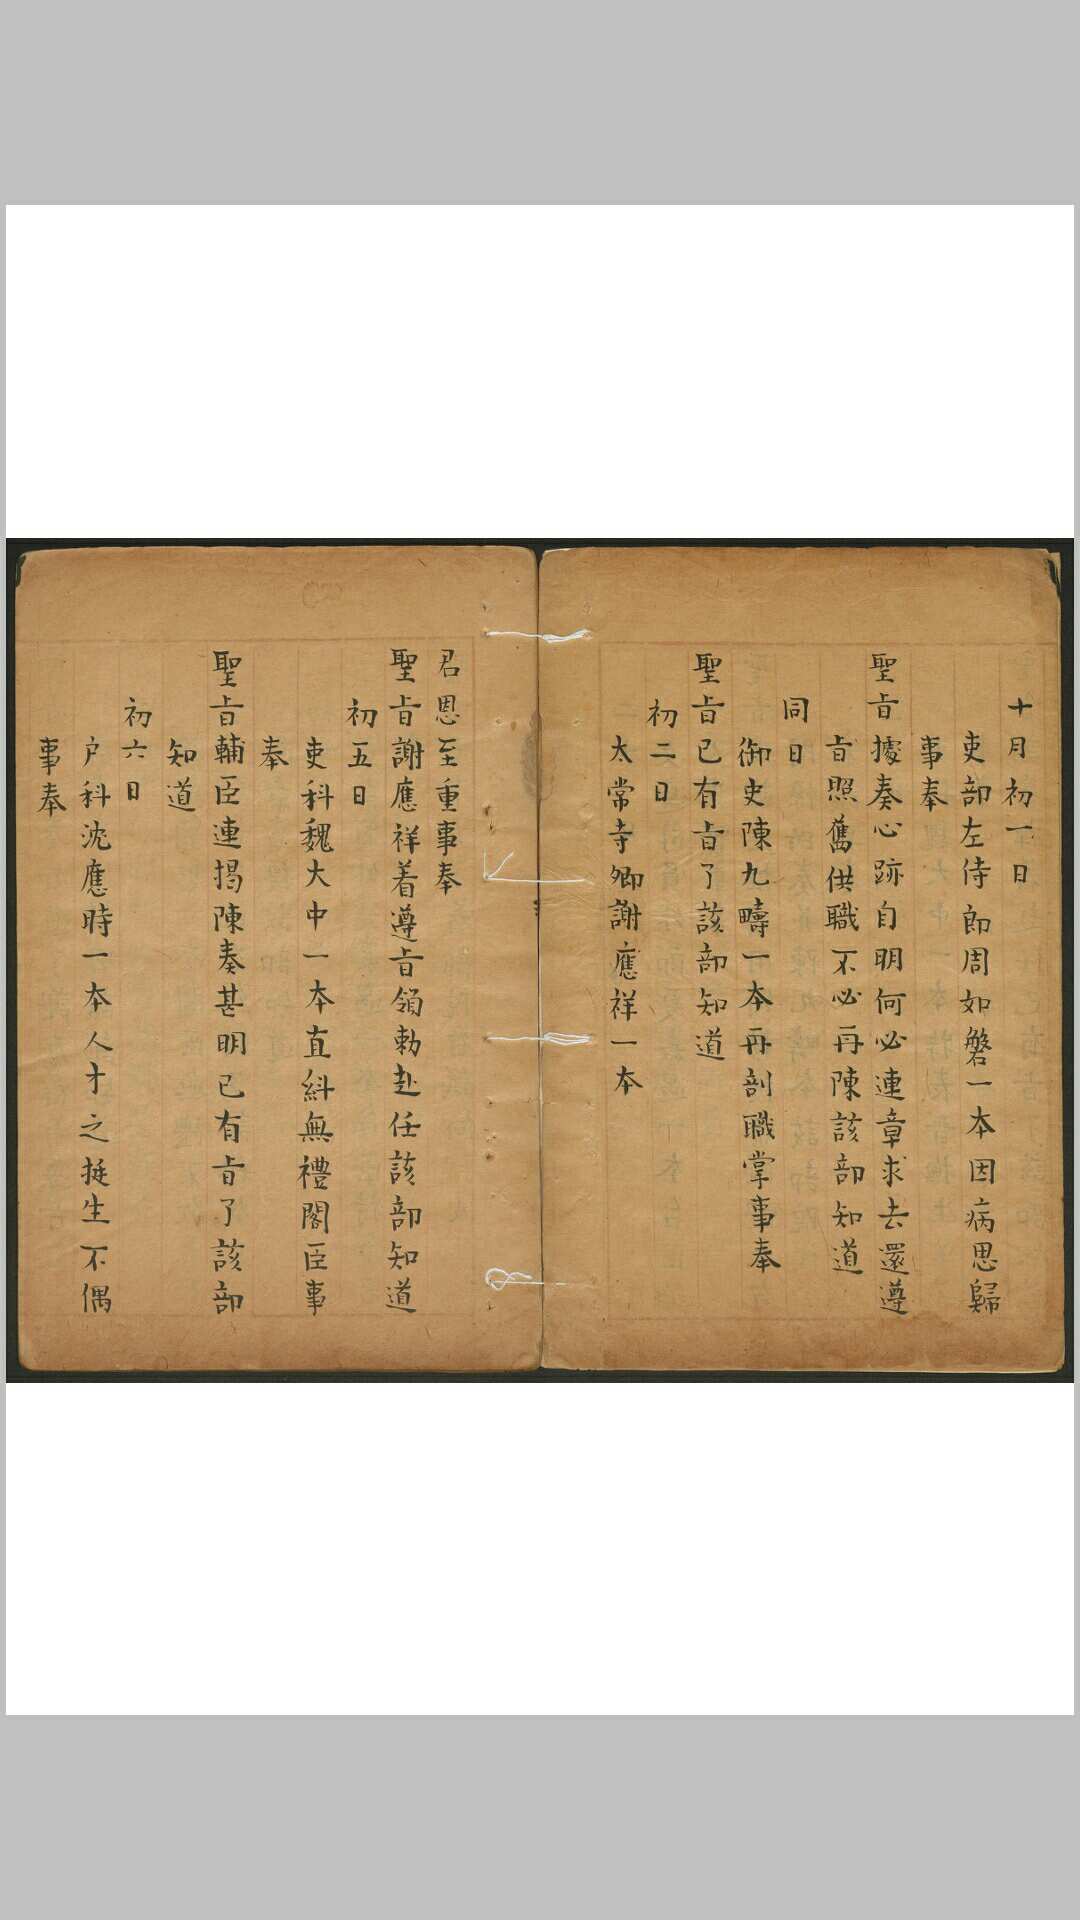 十月初一日
吏部左侍郎周如磐一本因病思歸
事奉
聖旨據奏心跡自明何必連章求去還遵
旨照舊供職不必再陳該部知道
同日
御史陳九疇一本再剖職掌事奉
聖旨已有旨了該部知道
初二日
太常寺卿謝應祥一本
君恩至重事奉
聖旨謝應祥着遵旨領勅赴任該部知道
初五日
吏科魏大中一本直糾無禮閣臣事
奉
聖旨輔臣連揭陳奏甚明已有旨了該部
知道
初六日
户科沈應時一本人才之挺生不偶
事奉